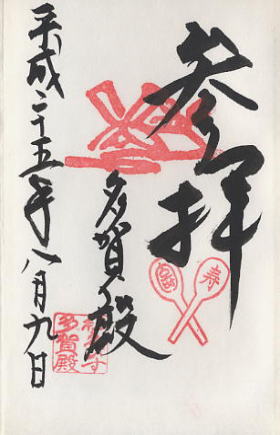 参拝
多賀殿
平成二十五年八月九日
寿
多賀殿